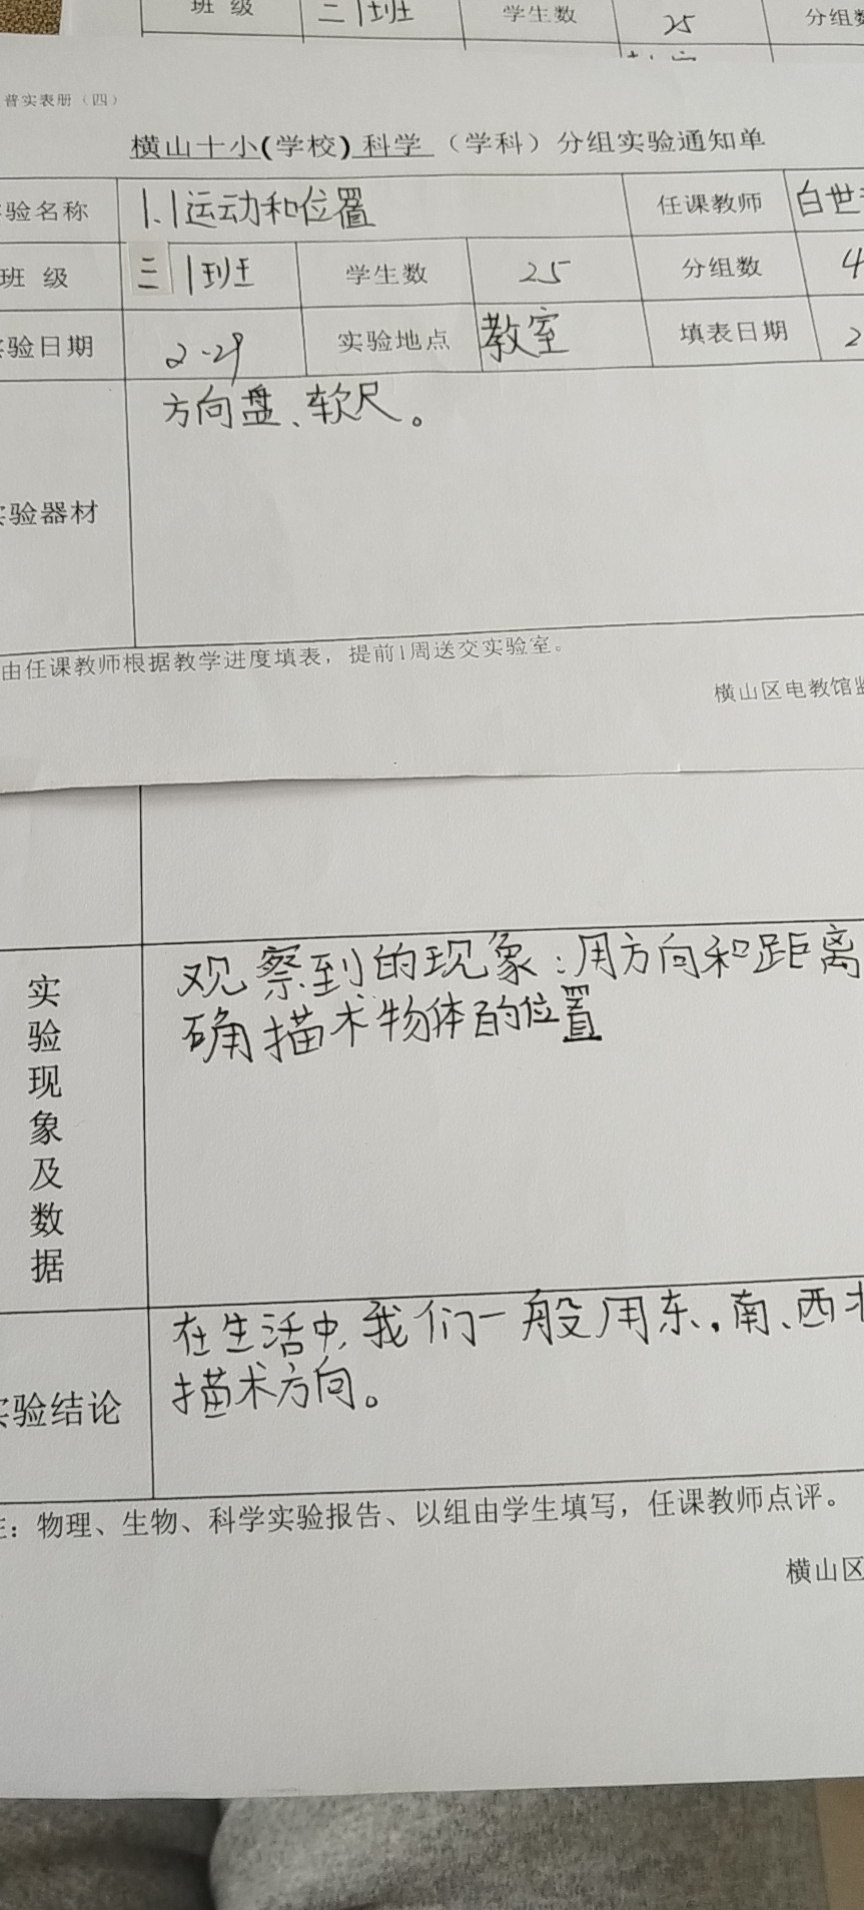 班 级 三1班 学生数 25 分组
普实表册（四）
横山十小(学校) 科学 （学科）分组实验通知单
验名称 1.1运动和位置 任课教师 白世
班 级 三1班 学生数 25 分组数 4
验日期 2-29 实验地点 教室 填表日期 2
方向盘、软尺。
验器材
由任课教师根据教学进度填表，提前1周送交实验室。
横山区电教馆
实验现象及数据
观察到的现象：用方向和距离
确描术物体的位置
在生活中，我们一般用东，南、西
验结论
描术方向。
：物理、生物、科学实验报告、以组由学生填写，任课教师点评。
横山区